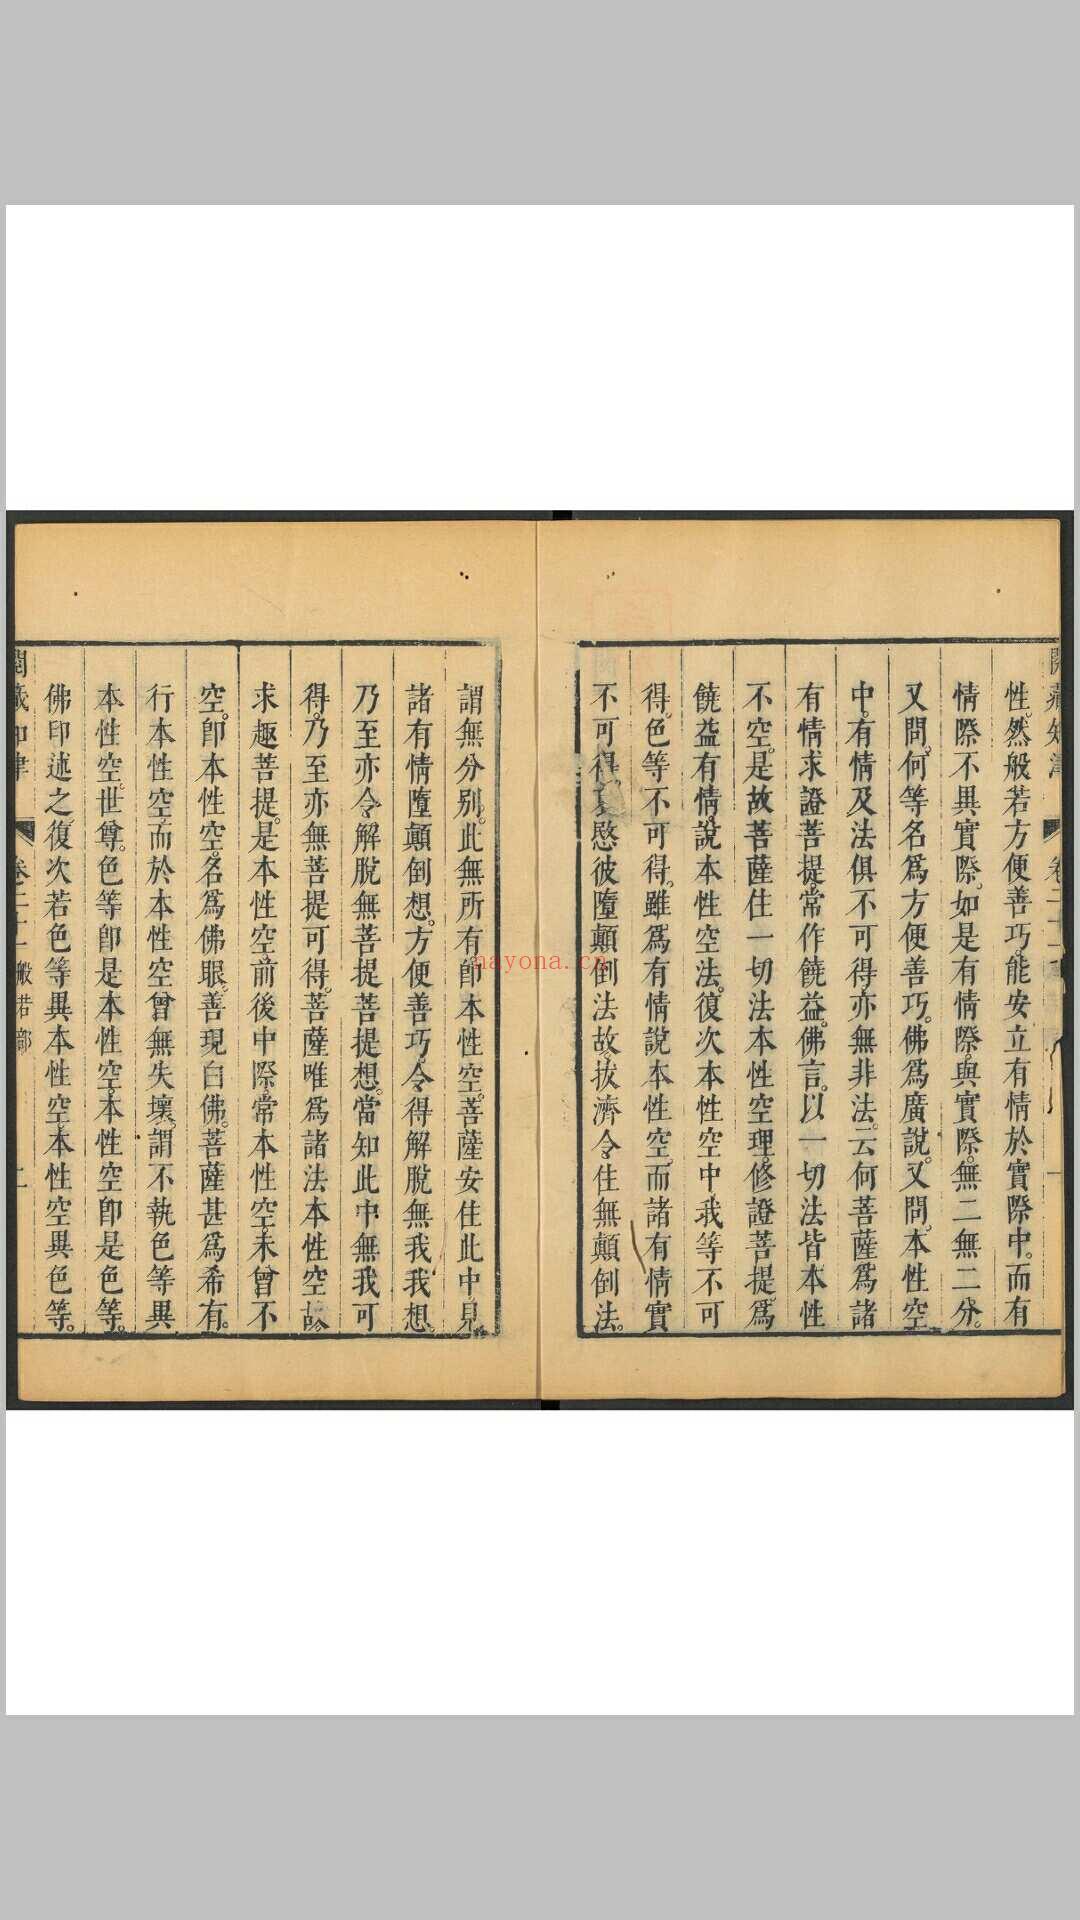 性。然般若方便善巧。能安立有情於實際中。而有
情際不異實際。如是有情際。與實際。無二無二分。
又問。何等名爲方便善巧。佛爲廣說。又問。本性空
中。有情及法俱不可得。亦無非法。云何菩薩爲諸
有情求證菩提。常作饒益。佛言。以一切法皆本性
不空。是故菩薩住一切法本性空理。修證菩提。爲
饒益有情。說本性空法。復次本性空中。我等不可
得。色等不可得。雖爲有情說本性空。而諸有情實
不可得。哀愍彼墮顛倒法故。拔濟令住無顛倒法。
謂無分別。此無所有卽本性空。菩薩安住此中。見
諸有情墮顛倒想。方便善巧。令得解脫無我我想。
乃至亦令解脫無菩提菩提想。當知此中無我可
得。乃至亦無菩提可得。菩薩唯爲諸法本性空故
求趣菩提。是本性空前後中際。常本性空。未曾不
空。卽本性空。名爲佛眼。善現白佛。菩薩甚爲希有。
行本性空。而於本性空曾無失壞。謂不執色等異
本性空。世尊。色等卽是本性空。本性空卽是色等。
佛印述之。復次若色等異本性空。本性空異色等。
閱藏知津 卷二十一 般若部 二
mayona.cn